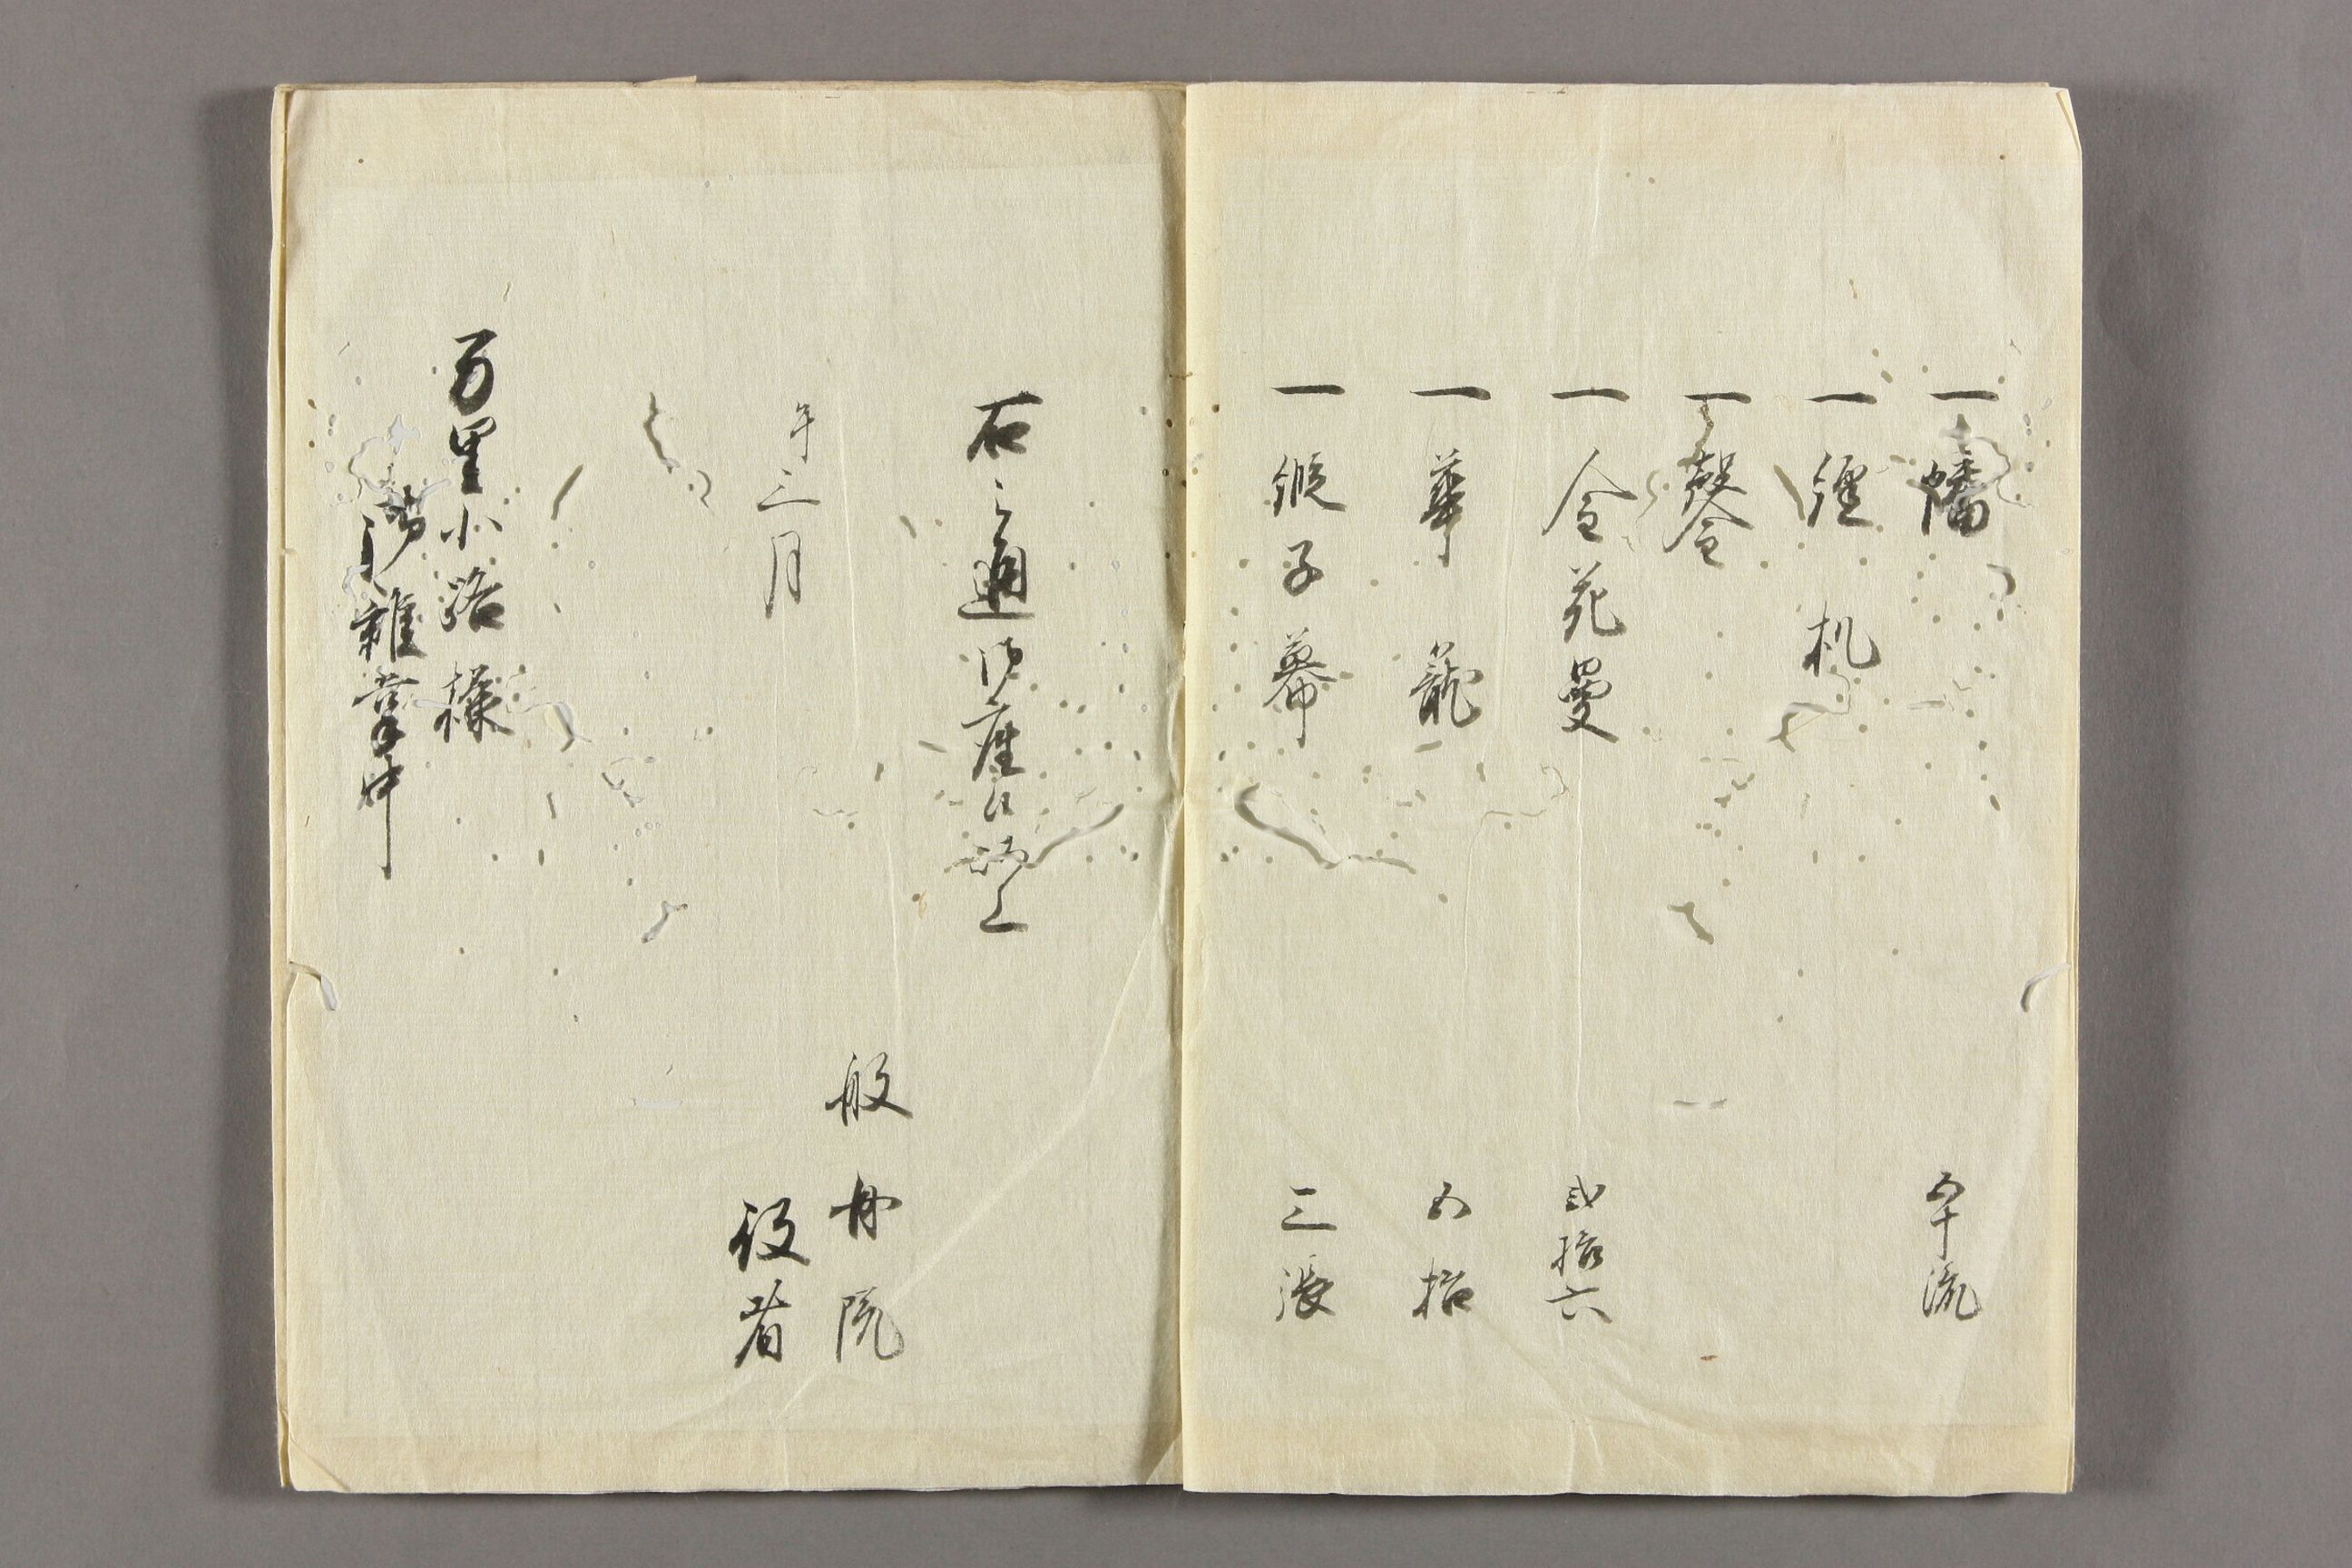 一幡　五十流
一経机
一磬台
一金花曼　弐拾六
一華籠　五拾
一緞子幕　三張
右之通御座候以上
般舟院
午三月
役者
万里小路様
御雑掌中